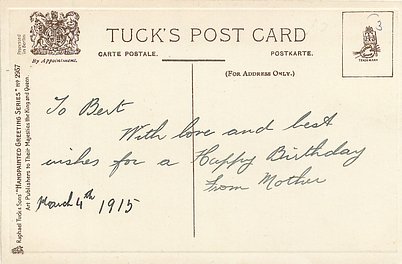 TUCK'S POST CARD
CARTE POSTALE.
POSTKARTE.
By Appointment.
(FOR ADDRESS ONLY.)
TRADE MARK
3
To Bert
With love and best
wishes for a Happy Birthday
from Mother
March 4th 1915
Raphael Tuck & Sons' "HANDPAINTED GREETING SERIES" No 2957
Art Publishers to Their Majesties the King and Queen.